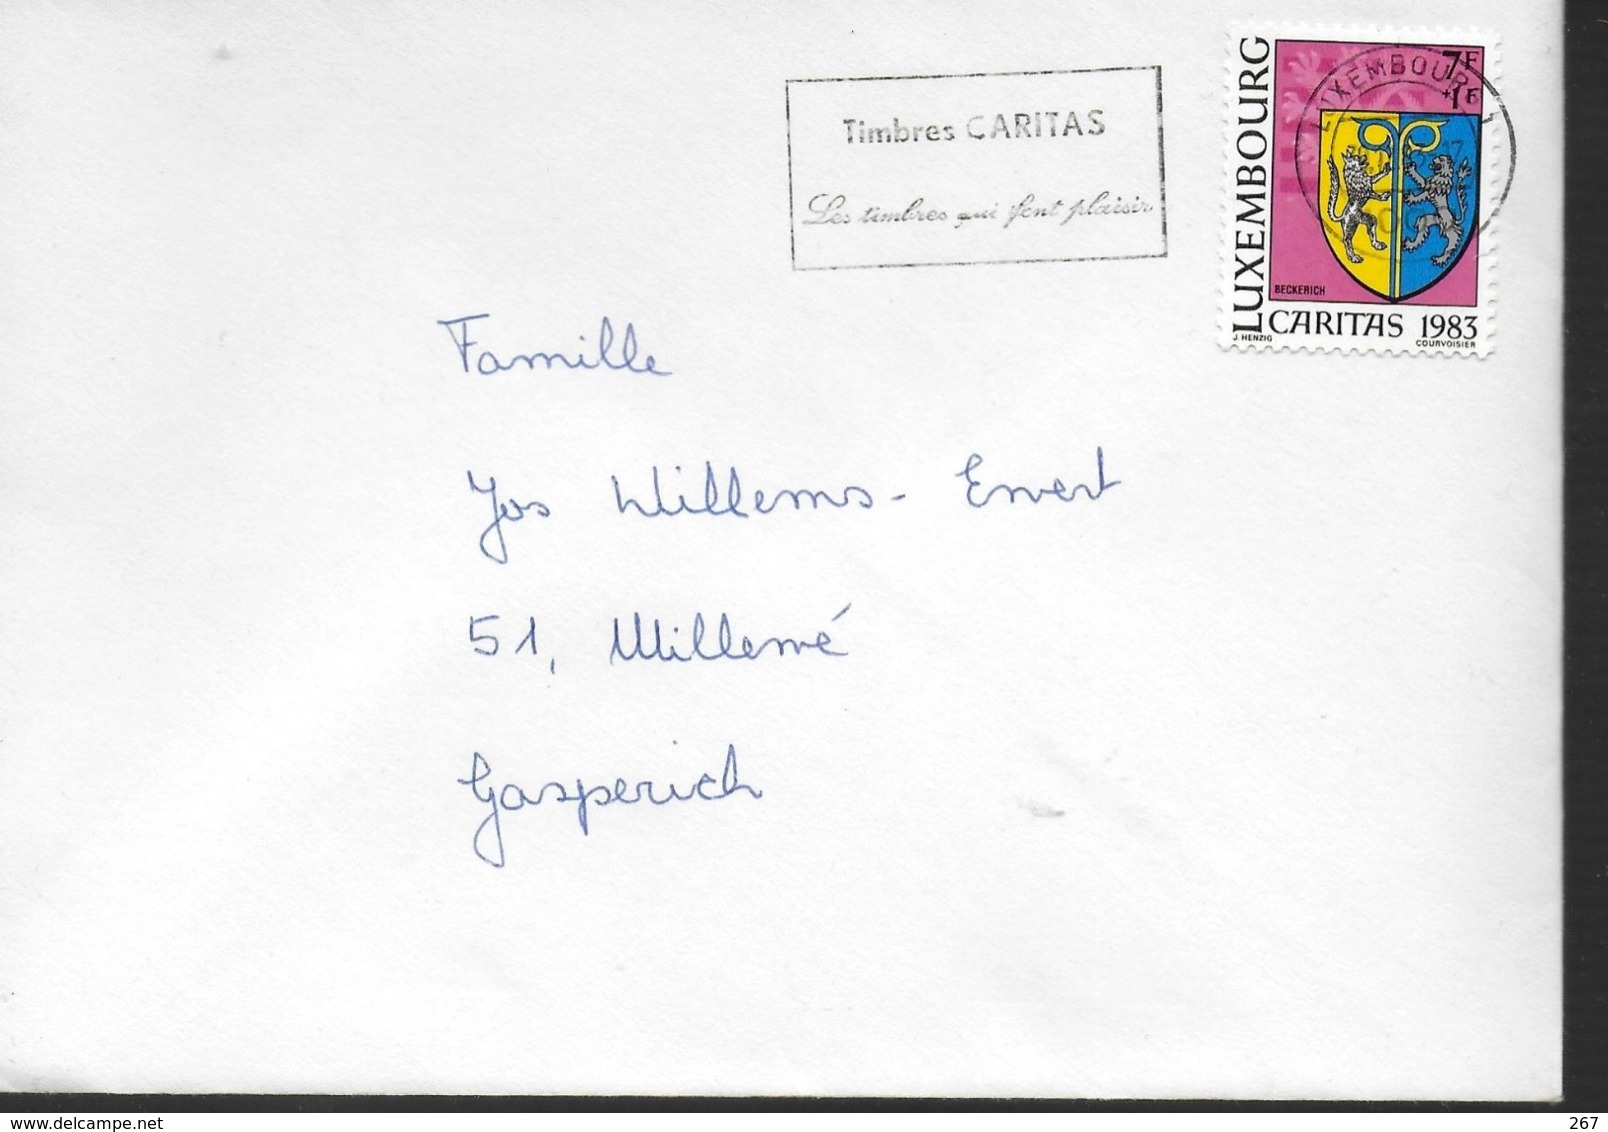 Timbres CARITAS
Les timbres qui font plaisir
LUXEMBOURG
7F
+1F
LUXEMBOURG 1
BECKERICH
CARITAS 1983
J. HENZIG
COURVOISIER
Famille
Jos Willems - Ewert
51, Millewé
Gasperich
www.delcampe.net
efemmera
267